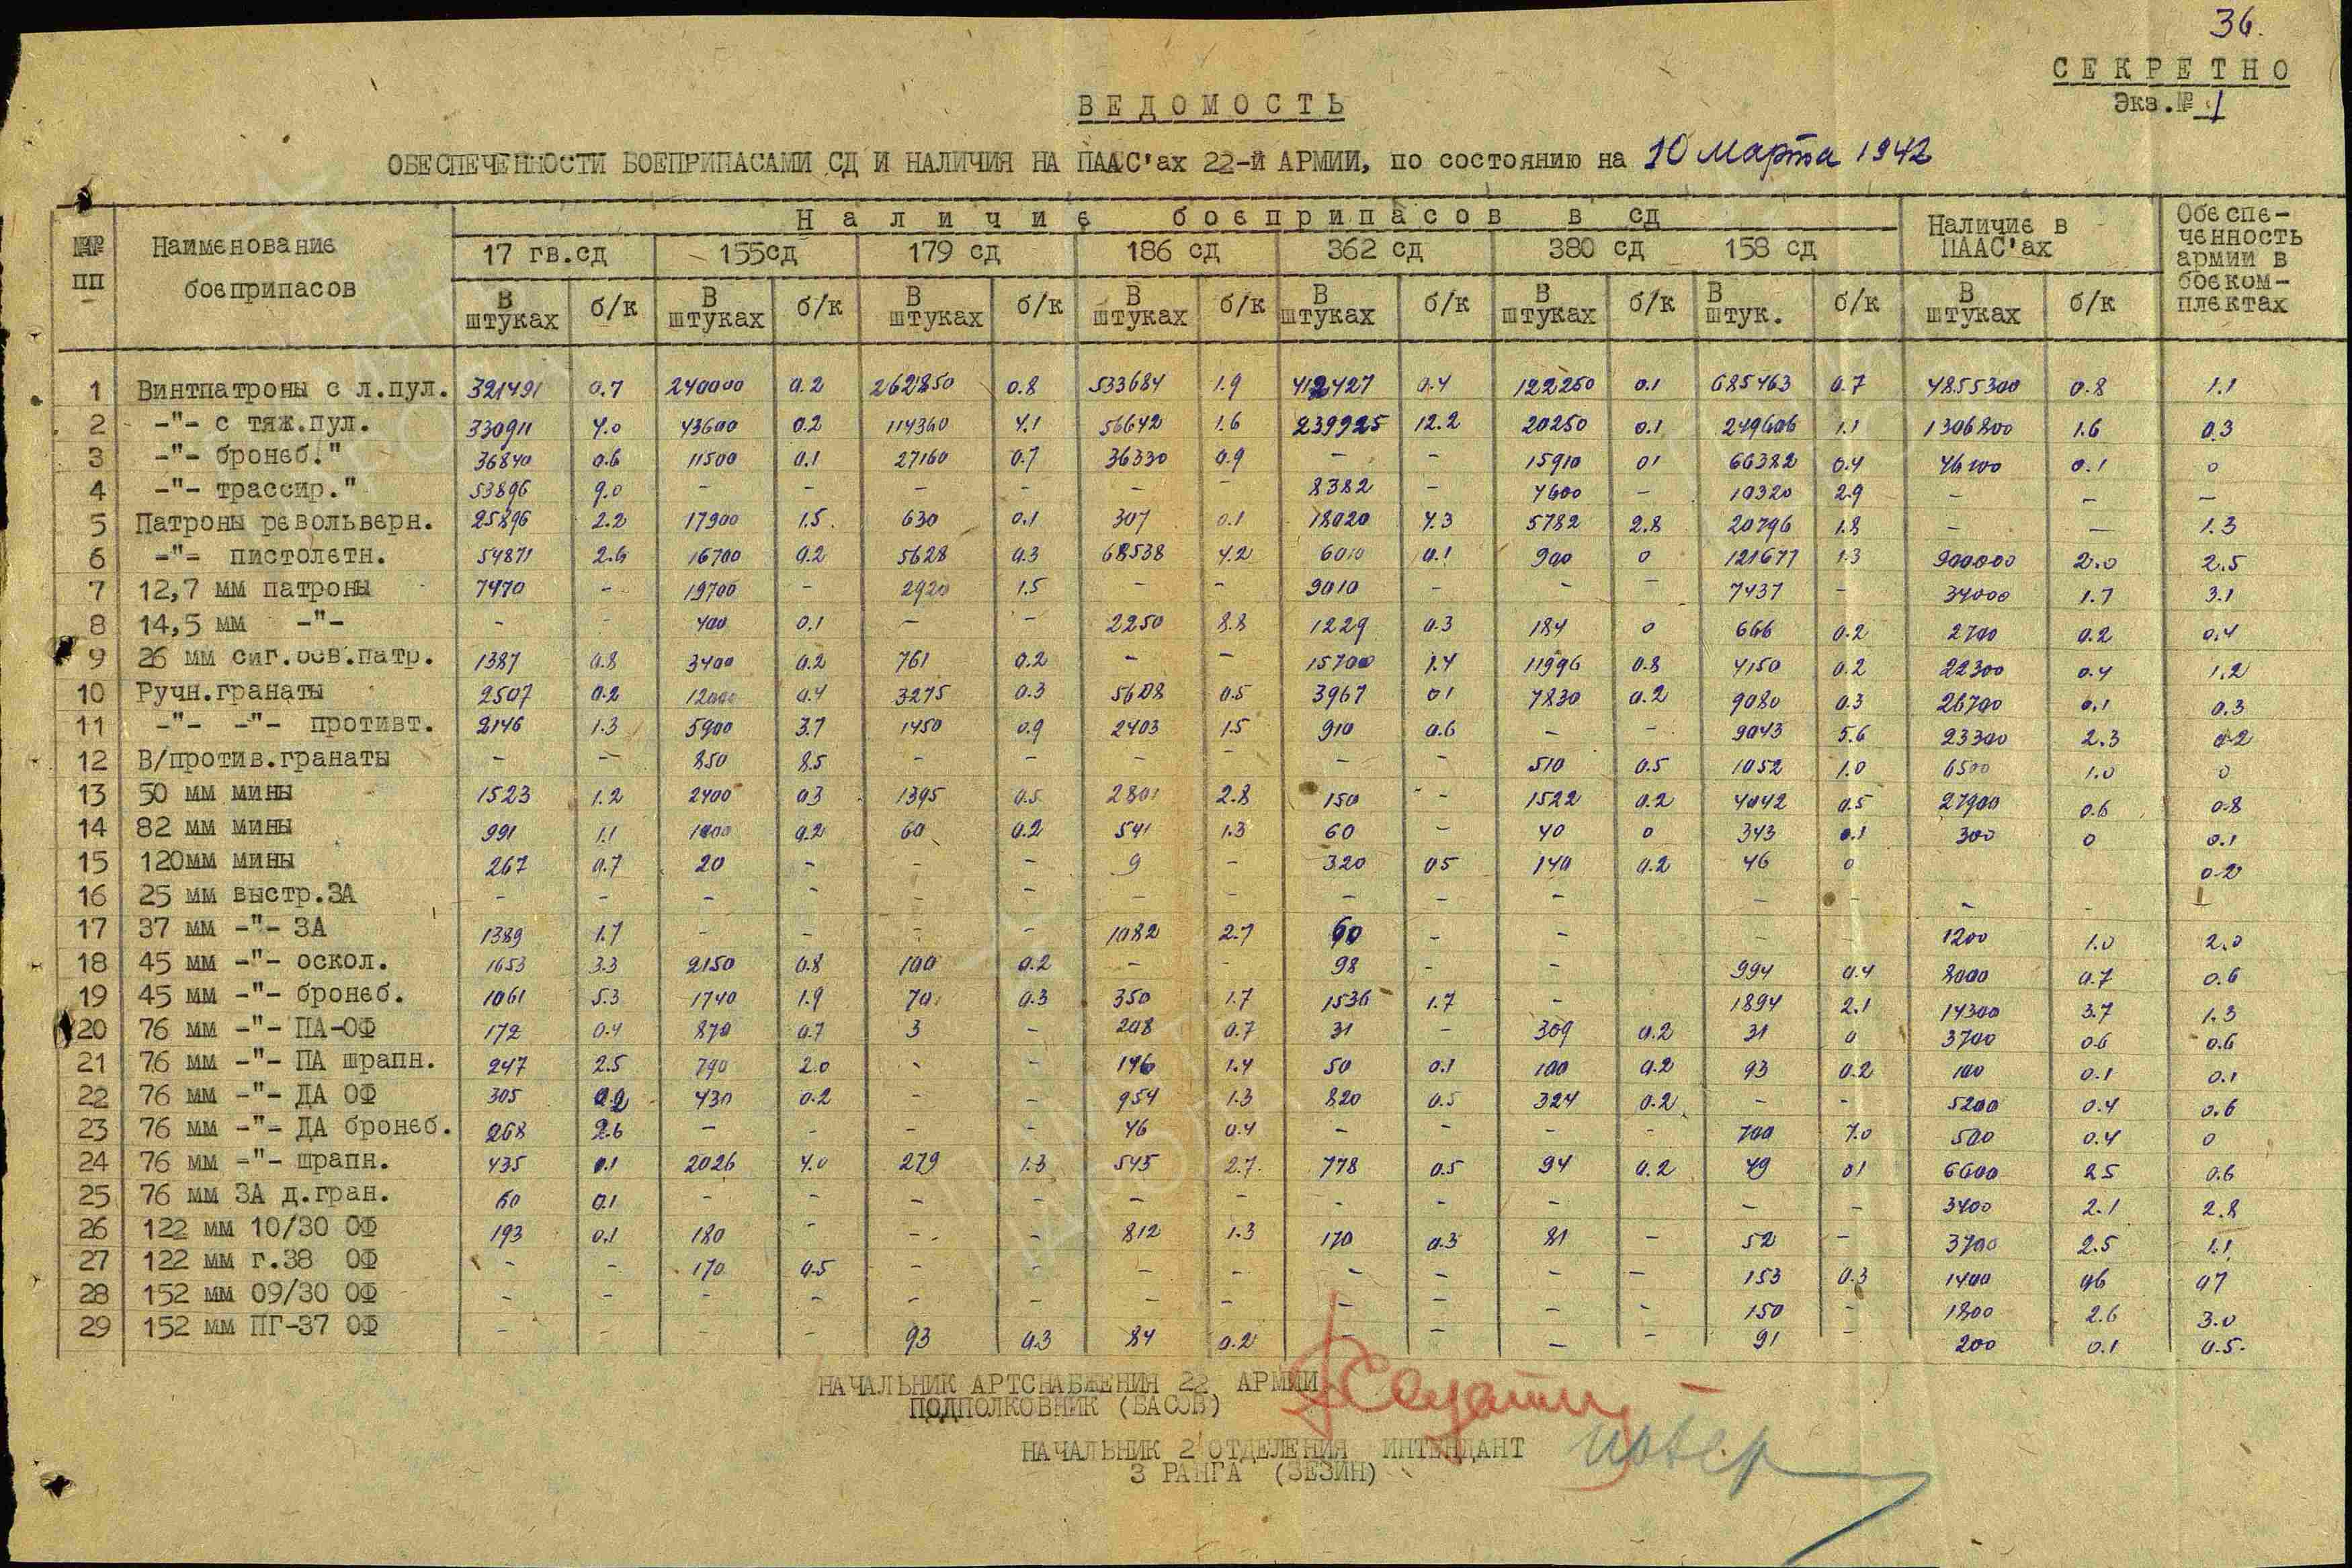 36.
СЕКРЕТНО
Экз.№ 1
ВЕДОМОСТЬ
ОБЕСПЕЧЕННОСТИ БОЕПРИПАСАМИ СД И НАЛИЧИЯ НА ПААС'ах 22-й АРМИИ, по состоянию на 10 марта 1942
№№ пп | Наименование боеприпасов | Наличие боеприпасов в сд | Наличие в ПААС'ах | Обеспе-ченность армии в боеком-плектах
17 гв.сд | 155сд | 179 сд | 186 сд | 362 сд | 380 сд | 158 сд
В штуках | б/к | В штуках | б/к | В штуках | б/к | В штуках | б/к | В штуках | б/к | В штуках | б/к | В штук. | б/к | В штуках | б/к
1 Винтпатроны с л.пул. 321491 0.7 240000 0.2 262850 0.8 533684 1.9 412427 0.4 122250 0.1 685463 0.7 4855300 0.8 1.1
2 -"- с тяж.пул. 330911 4.0 43600 0.2 114360 4.1 56642 1.6 239925 12.2 20250 0.1 249606 1.1 1306800 1.6 0.3
3 -"- бронеб." 36840 0.6 11500 0.1 27160 0.7 36330 0.9 - - 15910 01 66382 0.4 46100 0.1 0
4 -"- трассир." 53896 9.0 - - - - - - 8382 - 4600 - 10320 2.9 - - -
5 Патроны револьверн. 25896 2.2 17900 1.5. 630 0.1 307 0.1 18020 4.3 5782 2.8 20796 1.8 - - 1.3
6 -"- пистолетн. 54871 2.6 16700 0.2 5628 0.3 68538 4.2 6010 0.1 900 0 121677 1.3 900000 2.0 2.5
7 12,7 мм патроны 7470 - 19700 - 2920 1.5 - - 9010 - - - 7437 - 34000 1.7 3.1
8 14,5 мм -"- - - 400 0.1 - - 2250 8.8 1229 0.3 184 0 666 0.2 2700 0.2 0.4
9 26 мм сиг.осв.патр. 1387 0.8 3400 0.2 761 0.2 - - 15700 1.4 11996 0.8 4150 0.2 22300 0.4 1.2
10 Ручн.гранаты 2507 0.2 12000 0.4 3275 0.3 5608 0.5 3967 01 7830 0.2 9080 0.3 26700 0.1 0.3
11 -"- -"- противт. 2146 1.3 5900 3.7 1450 0.9 2403 1.5 910 0.6 - - 9043 5.6 23300 2.3 0.2
12 В/против.гранаты - - 850 8.5 - - - - - - 510 0.5 1052 1.0 6500 1.0 0
13 50 мм мины 1523 1.2 2400 03 1395 0.5 2801 2.8 150 - 1522 0.2 4042 0.5 27900 0.6 0.8
14 82 мм мины 991 1.1 1000 0.2 60 0.2 541 1.3 60 - 40 0 343 0.1 300 0 0.1
15 120мм мины 267 0.7 20 - - - 9 - 320 05 140 0.2 46 0 0.2
16 25 мм выстр.ЗА - - - - - - - - - - - - - - -
17 37 мм -"- ЗА 1389 1.7 - - - - 1082 2.7 60 - - - - 1200 1.0 2.0
18 45 мм -"- оскол. 1653 3.3 2150 0.8 100 0.2 - - 98 - - 994 0.4 8000 0.7 0.6
19 45 мм -"- бронеб. 1061 5.3 1740 1.9 70 0.3 350 1.7 1536 1.7 - 1894 2.1 14300 3.7 1.3
20 76 мм -"- ПА-ОФ 172 0.4 870 0.7 3 - 208 0.7 31 - 309 0.2 31 0 3700 0.6 0.6
21 76 мм -"- ПА шрапн. 247 2.5 790 2.0 - - 146 1.4 50 0.1 100 0.2 93 0.2 100 0.1 0.1
22 76 мм -"- ДА ОФ 305 430 0.2 - - 954 1.3 820 0.5 324 0.2 - - 5200 0.4 0.6
23 76 мм -"- ДА бронеб. 268 2.6 - - - - 46 0.4 - - - - 700 7.0 500 0.4 0
24 76 мм -"- шрапн. 435 0.1 2026 4.0 279 1.3 545 2.7 778 0.5 94 0.2 49 01 6600 25 0.6
25 76 мм ЗА д.гран. 60 0.1 - - - - - - - - - - - - 3400 2.1 2.8
26 122 мм 10/30 ОФ 193 0.1 180 - - - 812 1.3 170 0.3 81 - 52 - 3700 2.5 1.1
27 122 мм г.38 ОФ - - 170 0.5 - - - - - - - - 153 0.3 1400 06 07
28 152 мм 09/30 ОФ - - - - - - - - - - - - 150 - 1800 2.6 3.0
29 152 мм ПГ-37 ОФ - - - - 93 0.3 84 0.2 - - - - 91 - 200 0.1 0.5.
НАЧАЛЬНИК АРТСНАБЖЕНИЯ 22 АРМИИ
ПОДПОЛКОВНИК (БАСОВ)
НАЧАЛЬНИК 2 ОТДЕЛЕНИЯ ИНТЕНДАНТ
3 РАНГА (ЗЕЗИН)